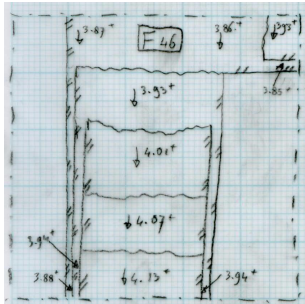 3.87+ F46 3.86+ 3.93+
3.85+
3.93+
4.01+
4.07+
3.94+
3.88+ 4.13+ 3.94+